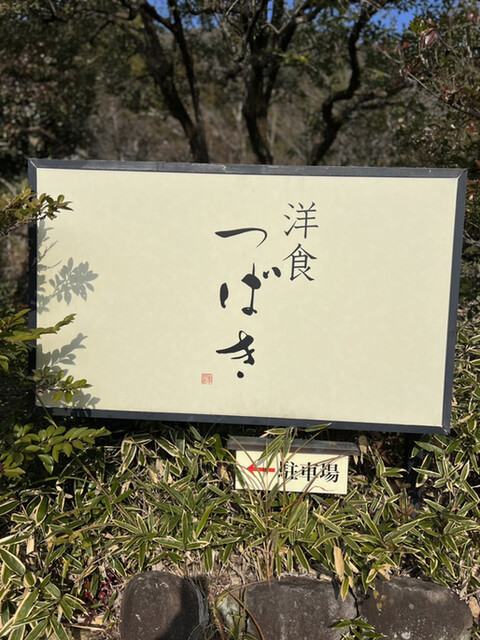 洋食
つばき
駐車場